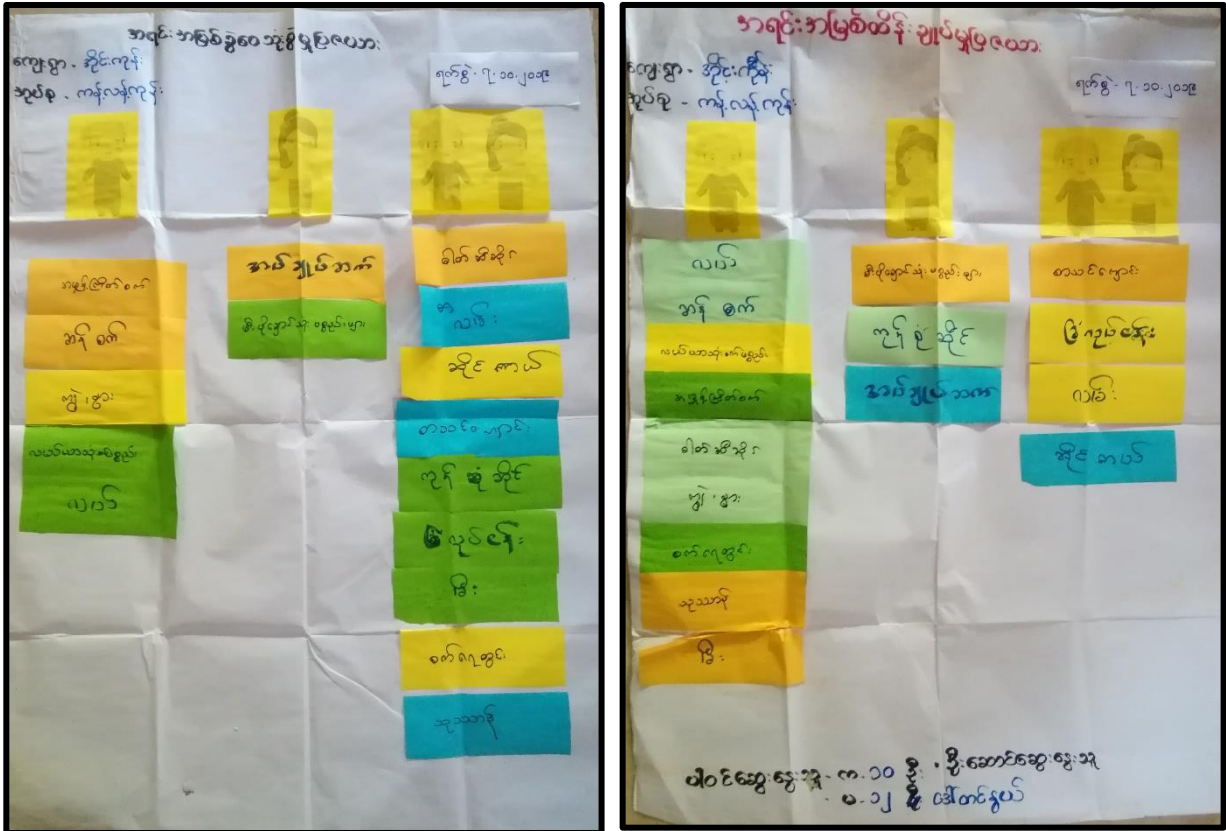 အရင်းအမြစ်ခွဲဝေသုံးစွဲမှုပြဇယား
ကျေးရွာ - အိုင်းကုန်း
အုပ်စု - ကန့်လန့်ကုန်း
ရက်စွဲ - ၇.၁၀.၂၀၁၉
အမှုန့်ကြိတ်စက်
ဆန် စက်
ကျွဲ ၊ နွား
လယ်ယာသုံးပစ္စည်း
လယ်
အပ်ချုပ်စက်
မီးဖိုချောင်သုံး ပစ္စည်းများ
ဓါတ်ဆီဆိုင်
လမ်း
ဆိုင် ကယ်
စာသင်ကျောင်း
ကုန် စုံ ဆိုင်
လုပ်ငန်း
ခြံ
စက်ရေတွင်း
သုဿာန်
အရင်းအမြစ်ထိန်းချုပ်မှုပြဇယား
ကျေးရွာ - အိုင်းကုန်း
အုပ်စု - ကန့်လန့်ကုန်း
ရက်စွဲ - ၇.၁၀.၂၀၁၉
လယ်
ဆန် စက်
လယ်ယာသုံးစက်ပစ္စည်း
အမှုန့်ကြိတ်စက်
ဓါတ်ဆီဆိုင်
ကျွဲ ၊ နွား
စက်ရေတွင်း
သုဿာန်
ခြံ
မီးဖိုချောင်သုံး ပစ္စည်းများ
ကုန် စုံ ဆိုင်
အပ်ချုပ်စက်
စာသင်ကျောင်း
ခြံလုပ်ငန်း
လမ်း
ဆိုင် ကယ်
ပါဝင်ဆွေးနွေးသူ - က - ၁၀ ဦး - ဦးဆောင်ဆွေးနွေးသူ
- မ - ၁၂ ဦး ဒေါ်တင်နွယ်